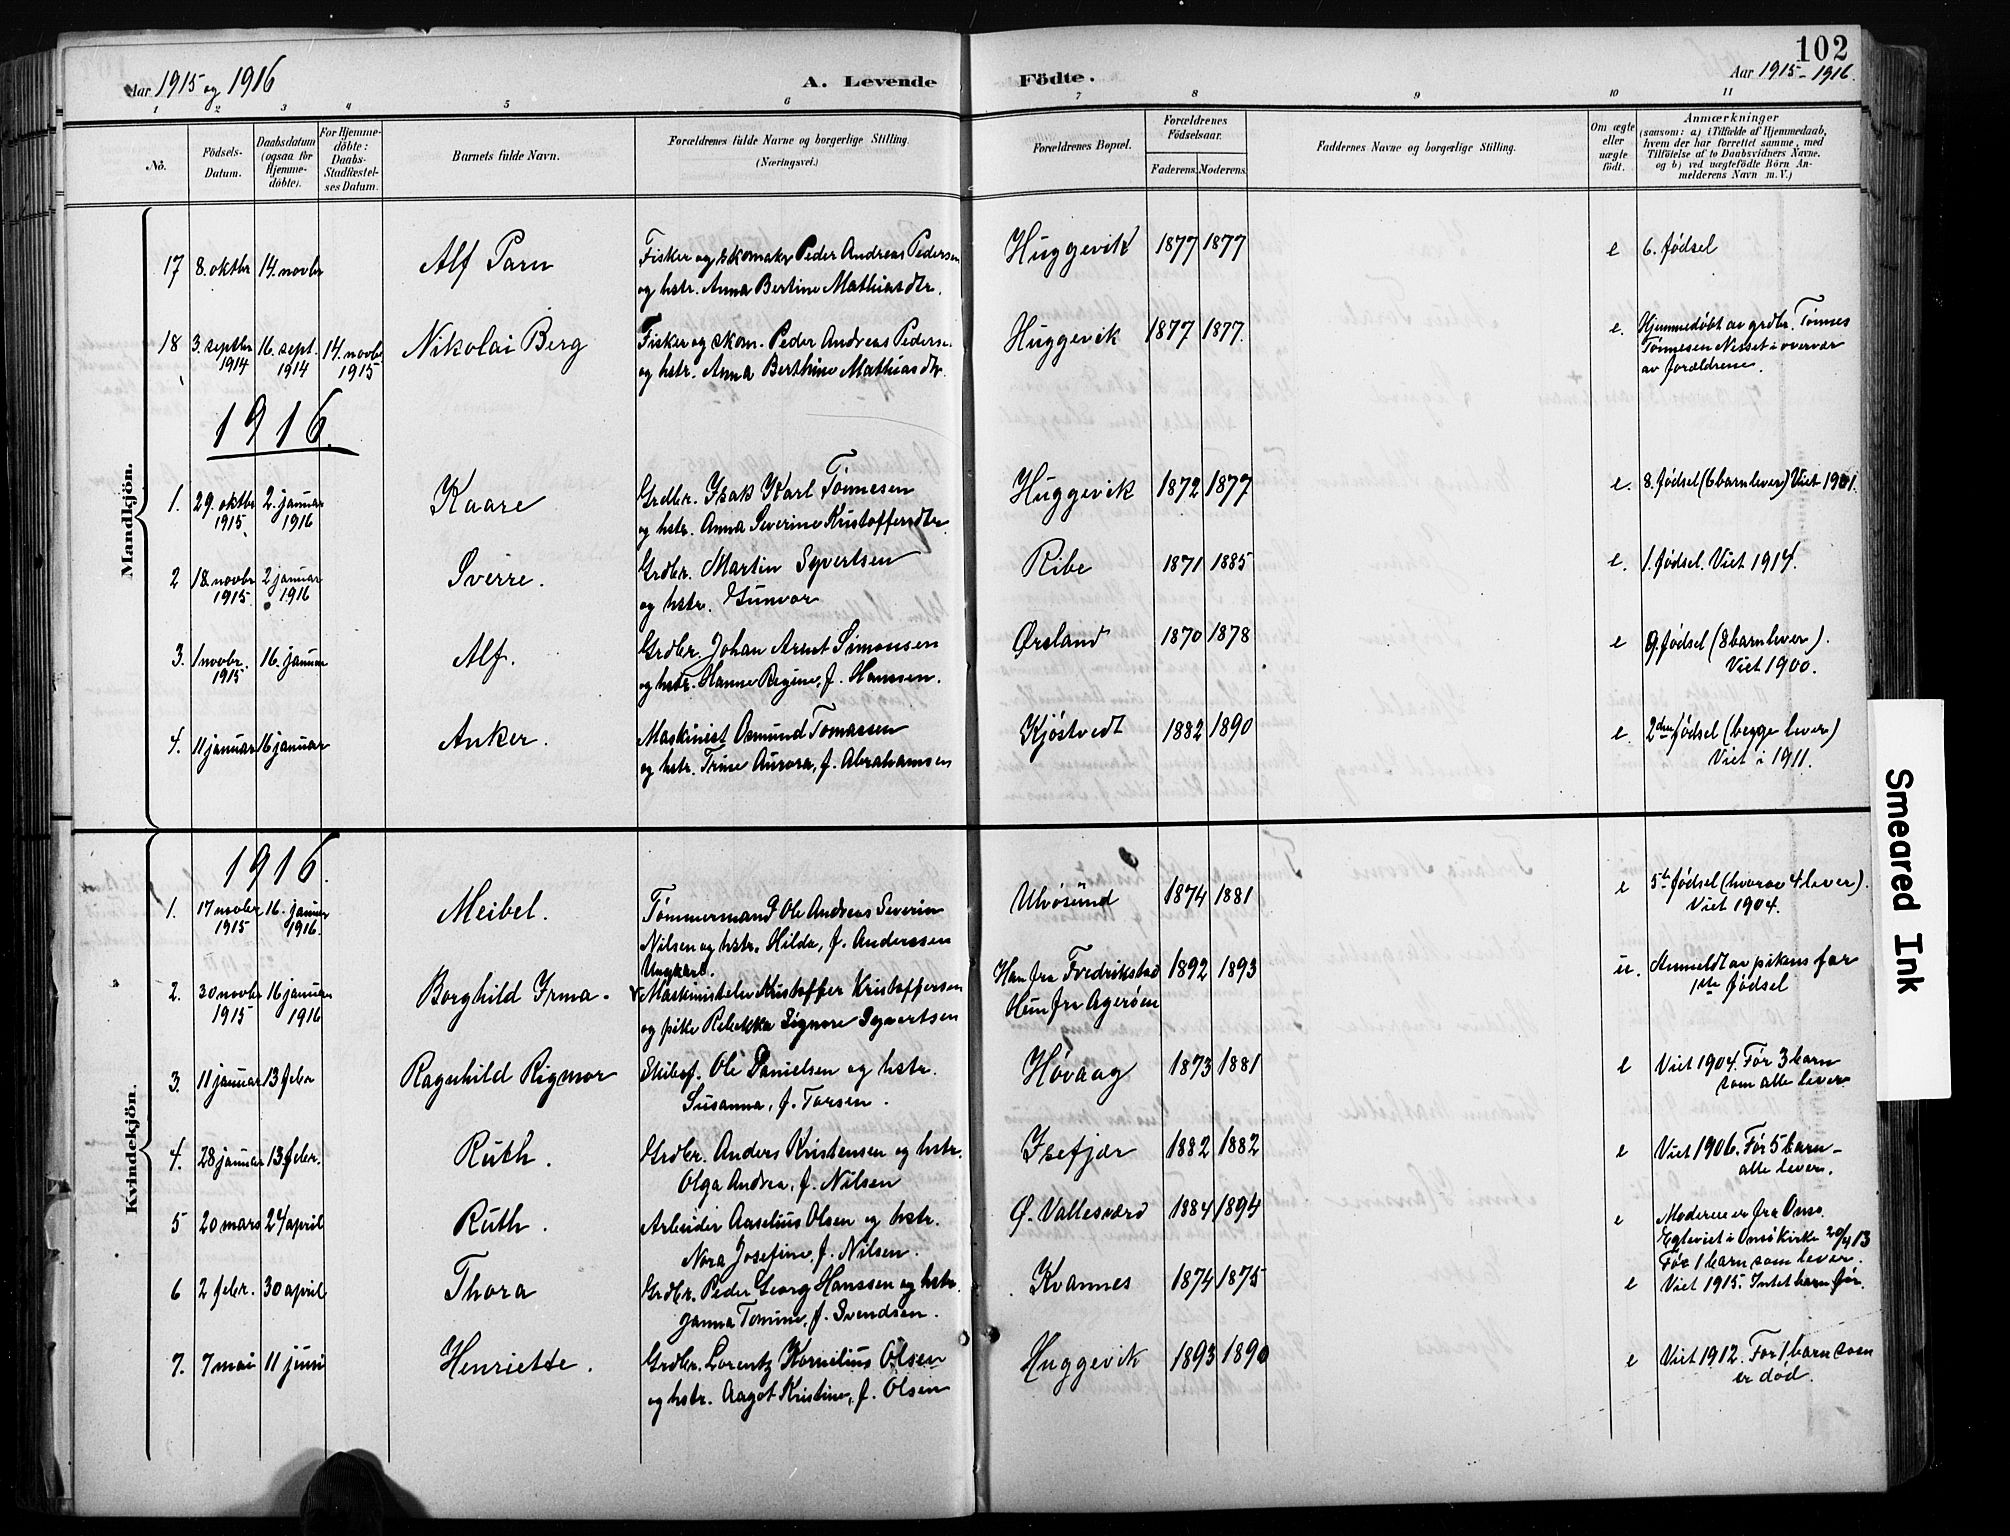 102
Aar 1915 og 1916
A. Levende Födte.
Aar 1915-1916.
1 2 3 4 5 6 7 8 9 10 11
No.
Födsels-Datum.
Daabsdatum (ogsaa for Hjemme-döbte).
For Hjemme-döbte: Daabs-Stadfæstel-ses Datum.
Barnets fulde Navn.
Forældrenes fulde Navne og borgerlige Stilling.
(Næringsvei.)
Forældrenes Bopæl.
Forældrenes Födselsaar.
Faderens. Moderens.
Faddernes Navne og borgerlige Stilling.
Om ægte eller uægte født.
Anmærkninger
(saasom: a) i Tilfælde af Hjemmedaab, hvem der har forrettet samme, med Tilföielse af to Daabsvidners Navne. og b) ved uægtefödte Börn An-melderens Navn m. V.)
Mandkjön.
17 8. oktbr 14. novbr Alf Parn Fisker og skomaker Peder Andreas Pedersen
og hstr. Anna Bertine Mathiasdtr. Huggevik 1877 1877 e 6. fødsel
18 3. septbr 1914 16. sept. 1914 14. novbr 1915 Nikolai Berg Fisker og skom. Peder Andreas Pedersen
og hstr. Anna Berthine Mathiasdtr. Huggevik 1877 1877. e. Hjemmedøbt av grdbr. Tønnes
Tønnesen Nesset i overvær
av forældrene.
1916.
1. 29. oktbr 1915 2. januar 1916 Kaare Grdbr. Isak Karl Tønnesen
og hstr. Anna Severine Kristoffersdtr Huggevik 1872 1877 e. 8. fødsel (6 barn lever) Viet 1901.
2 18 novbr 1915 2 januar 1916 Sverre. Grdbr. Martin Syvertsen
og hstr. Gunvor Ribe 1871 1885 e. 1. fødsel. Viet 1914.
3. 1 novbr. 1915 16. januar Alf. Grdbr. Johan Arnt Simonsen
og hstr. Hanne Regine, f. Hanssen. Ørsland 1870 1878 e 9. fødsel (8 barn lever).
Viet 1900.
4. 11 januar 16 januar Anker. Maskinist Osmund Tomassen
og hstr. Trine Aurora, f. Abrahamsen Kjøstvedt 1882 1890 e. 2den fødsel (begge lever)
Viet i 1911.
Kvindekjön.
1916.
1. 17 novbr 1915 16. januar 1916. Meibel. Tømmermand Ole Andreas Severin
Nilsen og hstr. Hilda, f. Anderssen Ulvøsund 1874 1881 e 5te fødsel (hvorav 4 lever).
Viet 1904.
2. 30 novbr 1915 16 januar 1916 Borghild Irma. Ungkarl.
Maskinistelev Kristoffer Kristoffersen
og pike Rebekka Signore Syvertsen Han fra Fredrikstad
Hun fra Agerøen 1892 1893 u. Anmeldt av pikens far
1ste fødsel
3. 11 januar 13 febr Ragnhild Rigmor Skibsf. Ole Danielsen og hstr.
Susanna, f. Torsen. Høvaag 1873 1881 e Viet 1904. Før 3 barn
som alle lever.
4. 28 januar 13. febr. Ruth. Grdbr. Anders Kristensen og hstr.
Olga Andrea, f. Nilsen Isefjær 1882 1882 e Viet 1906. Før 5 barn -
alle lever.
5 20 mars 24 april Ruth. Arbeider Aaselius Olsen og hstr.
Nora Josefine, f. Nilsen. Ø. Vallesværd 1884 1894 e Moderen er fra Onsø.
Egteviet i Onsø kirke 20/4 13
Før 1 barn som lever.
6 2 febr. 30 april Thora Grdbr. Peder Georg Hanssen og hstr.
Janna Tomine, f. Svendsen. Kvannes 1874 1875 e Viet 1915. Intet barn før.
7. 7 mai 11 juni Henriette. Grdbr. Lorentz Kornelius Olsen
og hstr. Aagot Kristine, f. Olsen Huggevik 1893 1890 e Viet 1912. Før 1 barn som
er død.
Smeared Ink